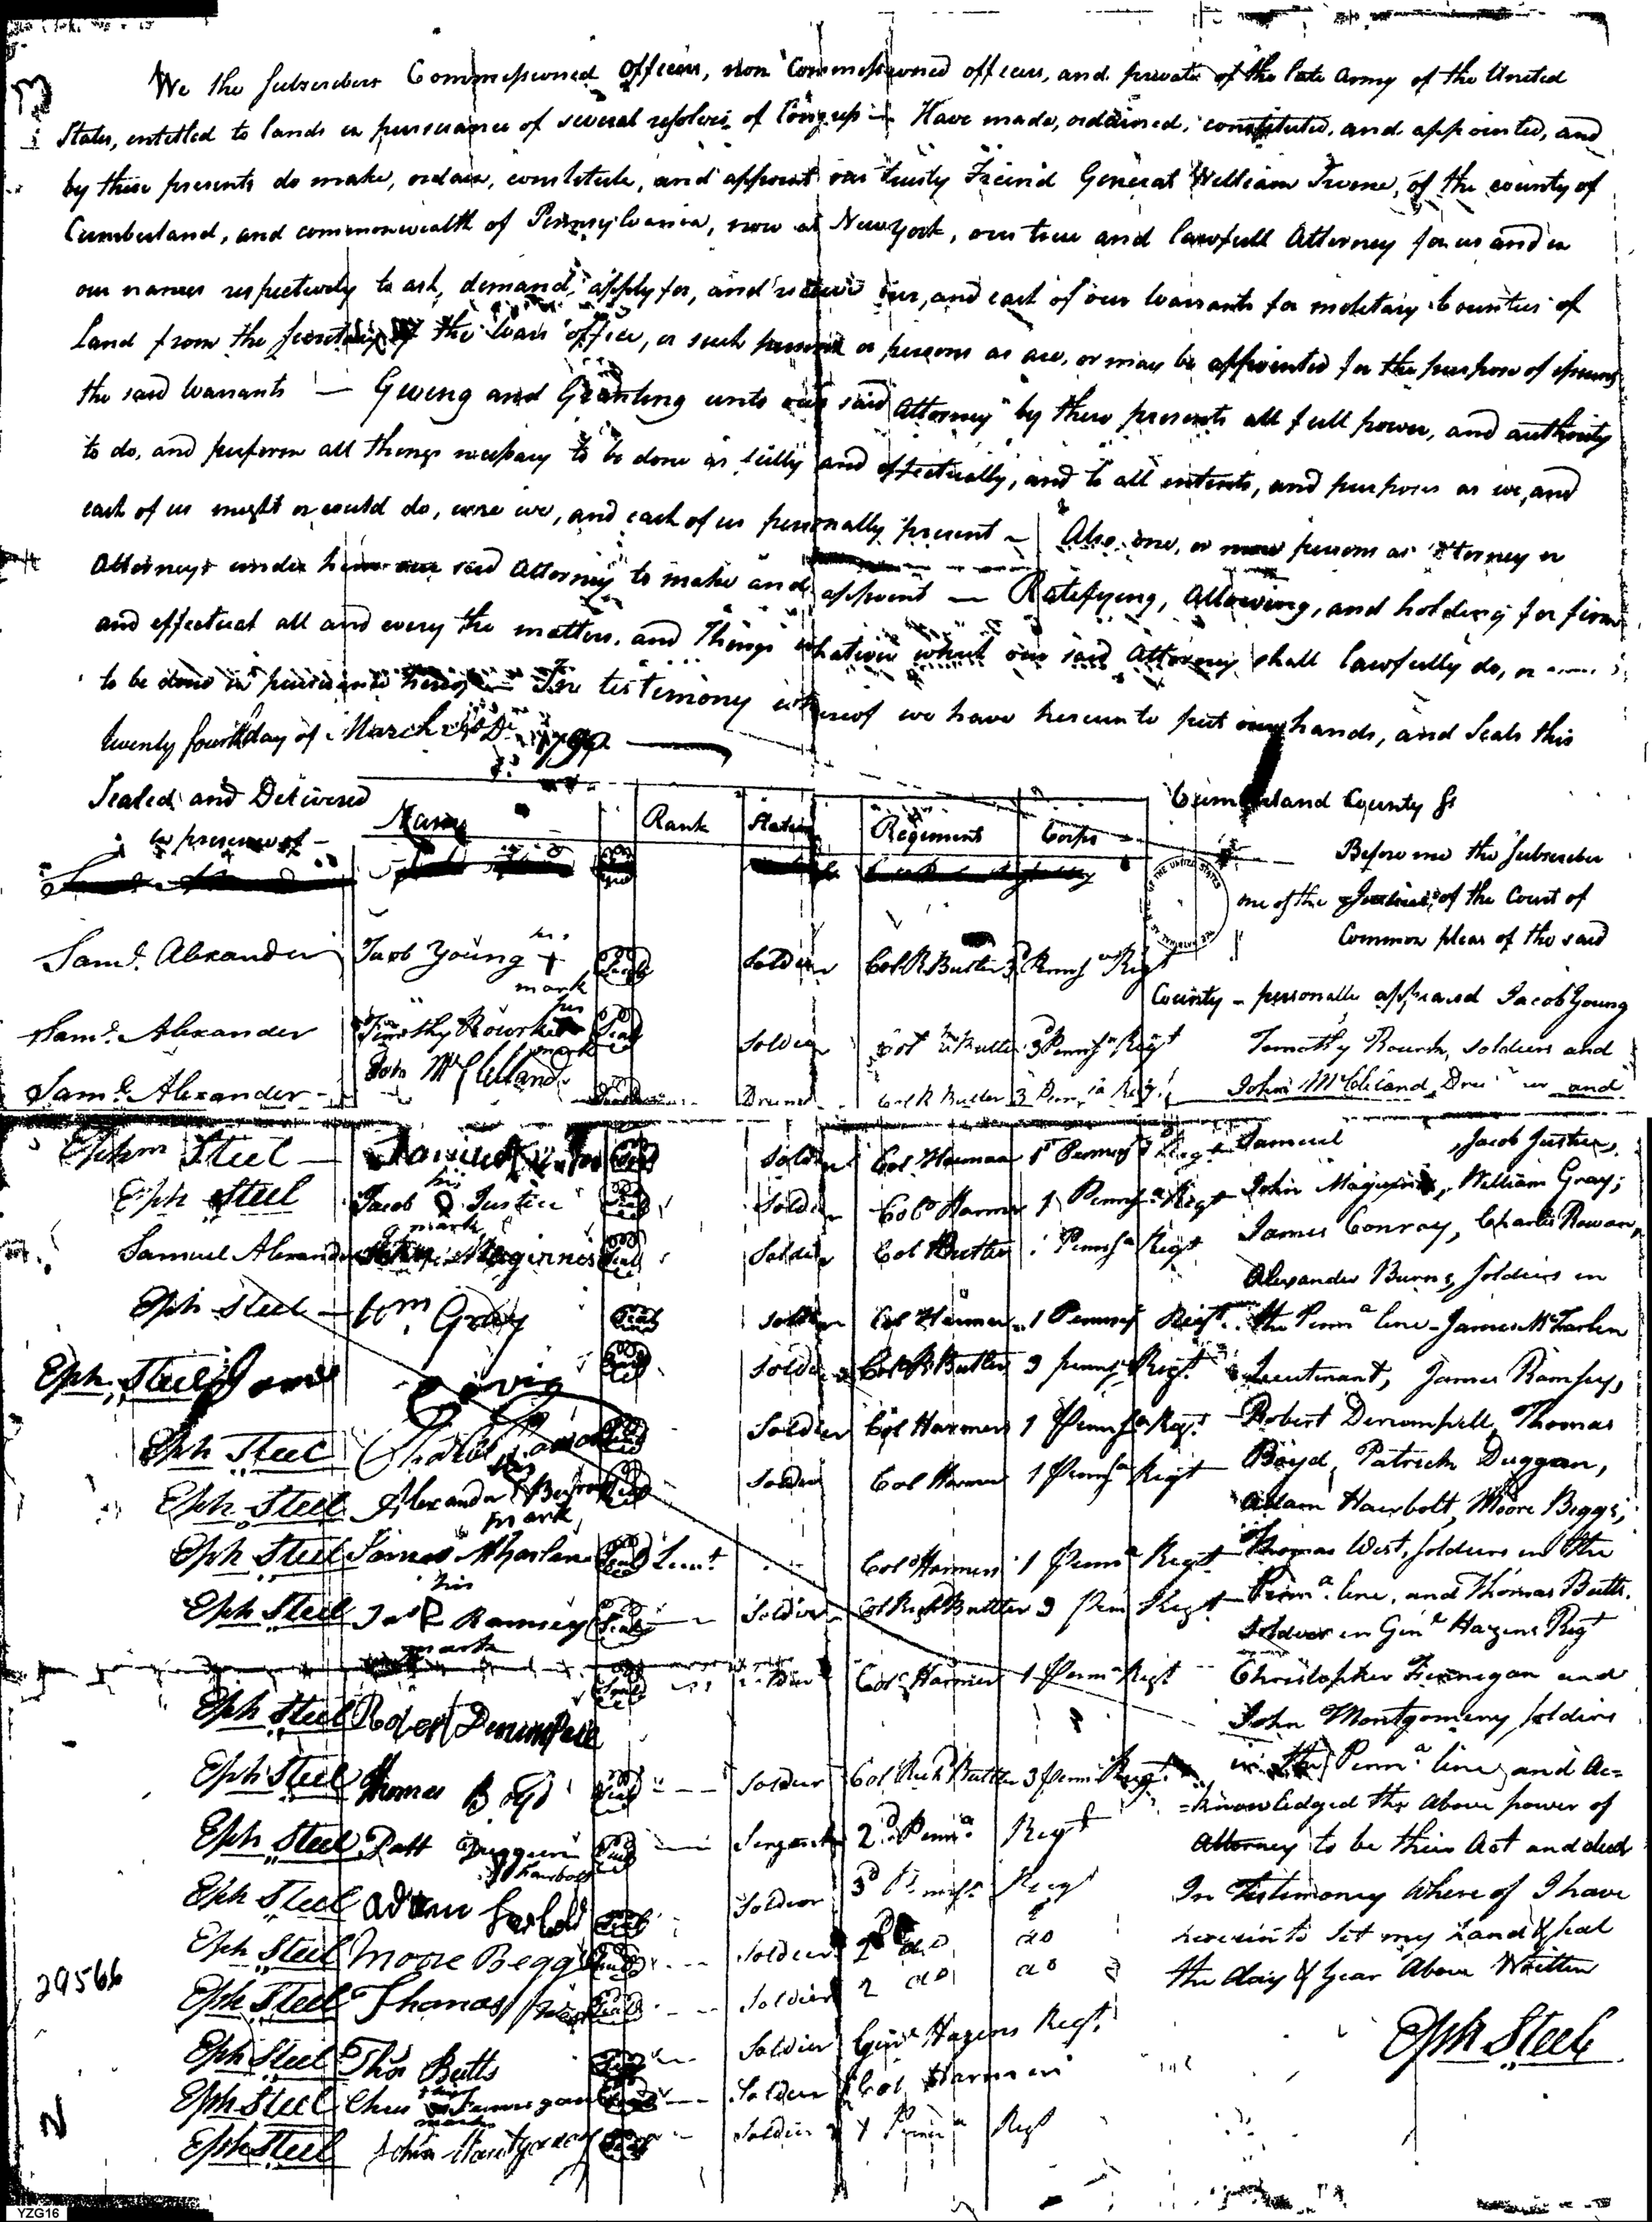 We the Subscribers Commissioned Officers, non Commissioned officers, and privates of the late Army of the United
States, entitled to lands in pursuance of several resolves of Congress — Have made, ordained, constituted, and appointed, and
by these presents do make, ordain, constitute, and appoint our trusty Freind General William Irvine, of the county of
Cumberland, and commonwealth of Pennsylvania, now at New York, our true and lawfull Attorney for us and in
our names respectively to ask, demand, apply for, and receive our, and each of our Warrants for military Bounties of
land from the Secretary of the War office, or such person or persons as are, or may be appointed for the purpose of issuing
the said Warrants — Giving and Granting unto our said Attorney by these presents all full power, and authority
to do, and perform all things necessary to be done as fully and effectually, and to all intents, and purposes as we, and
each of us might or could do, were we, and each of us personally present — Also one, or more persons as Attorney or
Attorneys under him our said Attorney to make and appoint — Ratifying, Allowing, and holding for firm
and effectual all and every the matters, and Things whatsoever which our said Attorney shall lawfully do, or
to be done in pursuance hereof — In testimony whereof we have hereunto put our hands, and Seals this
twenty fourth day of March
Sealed and Delivered
in presence of —
Name Rank Station Regiment Corps
Sam.l Alexander Jacob Young his mark Seal Soldier Col R Butler 3 Penns.a Regt
Sam.l Alexander Timothy Rourke his mark Seal Soldier Col R Butler 3 Penns.a Regt
Sam.l Alexander John McClelland Drumer Col R Butler 3 Penn.a Regt
Ephm Steel — Seal Soldier Col Harmar 1 Penns.a Regt
Eph Steel Jacob Justice his mark Seal Soldier Col.o Harmer 1 Penns.a Regt
Samuel Alexander Maginnis Seal Soldier Col Butler Penns.a Regt
Eph Steel — Wm Gray Seal Soldier Col Harmer 1 Penns.a Regt
Eph. Steel Seal Soldier Col R Butler 3 Penns.a Regt
Eph Steel Charles Seal Soldier Col Harmer 1 Penns.a Regt
Eph Steel Alexander Burns his mark Seal Soldier Col Harmer 1 Penns.a Regt
Eph Steel James McFarlane Seal Lieut Col.o Harmer 1 Penn.a Regt
Eph Steel Ja.s Ramsey his mark Seal Soldier Col Rich Butler 3 Pen Regt
Eph Steel Robert Denumpell Seal Col.o Harmer 1 Penn.a Regt
Eph Steel Thomas Boyd Seal Soldier Col Rich Butler 3 Penn Regt
Eph Steel Patt Duggan Seal Sergeant 2.d Penn.a Regt
Eph Steel Adam Seal Soldier 3.d Regt
Eph Steel Moore Beggs Seal Soldier 2 do do
Eph Steel Thomas West Seal Soldier 2 do do
Eph Steel Tho.s Butts Seal Soldier Gen.l Hazens Regt.
Eph Steel Chris his mark Soldier Col Harmer
Eph Steel John Montgomery Seal Soldier Penn.a Regt
Cumberland County Ss
Before me the Subscriber
one of the Justices of the Court of
Common pleas of the said
County — personally appeared Jacob Young
Timothy Rourk, soldiers and
John McCleland Drummer and
Samuel Jacob Justice,
John Maginnis, William Gray,
James Conroy, Charles Rowan,
Alexander Burns, Soldiers in
the Penn.a line — James McFarlen
Lieutenant, James Ramsey,
Robert Denumpell, Thomas
Boyd, Patrick Duggan,
Adam Hairbolt, Moore Beggs,
Thomas West, Soldiers in the
Penn.a line, and Thomas Butts.
Soldier in Gen.l Hazens Regt
Christopher Finnegan and
John Montgomery soldiers
in the Penn.a line, and Ac=
=knowledged the above power of
Attorney to be their Act and deed
In Testimony Where of I have
hereunto Set my hand & Seal
the day & year Above Written
Eph Steel
29566
YZG16